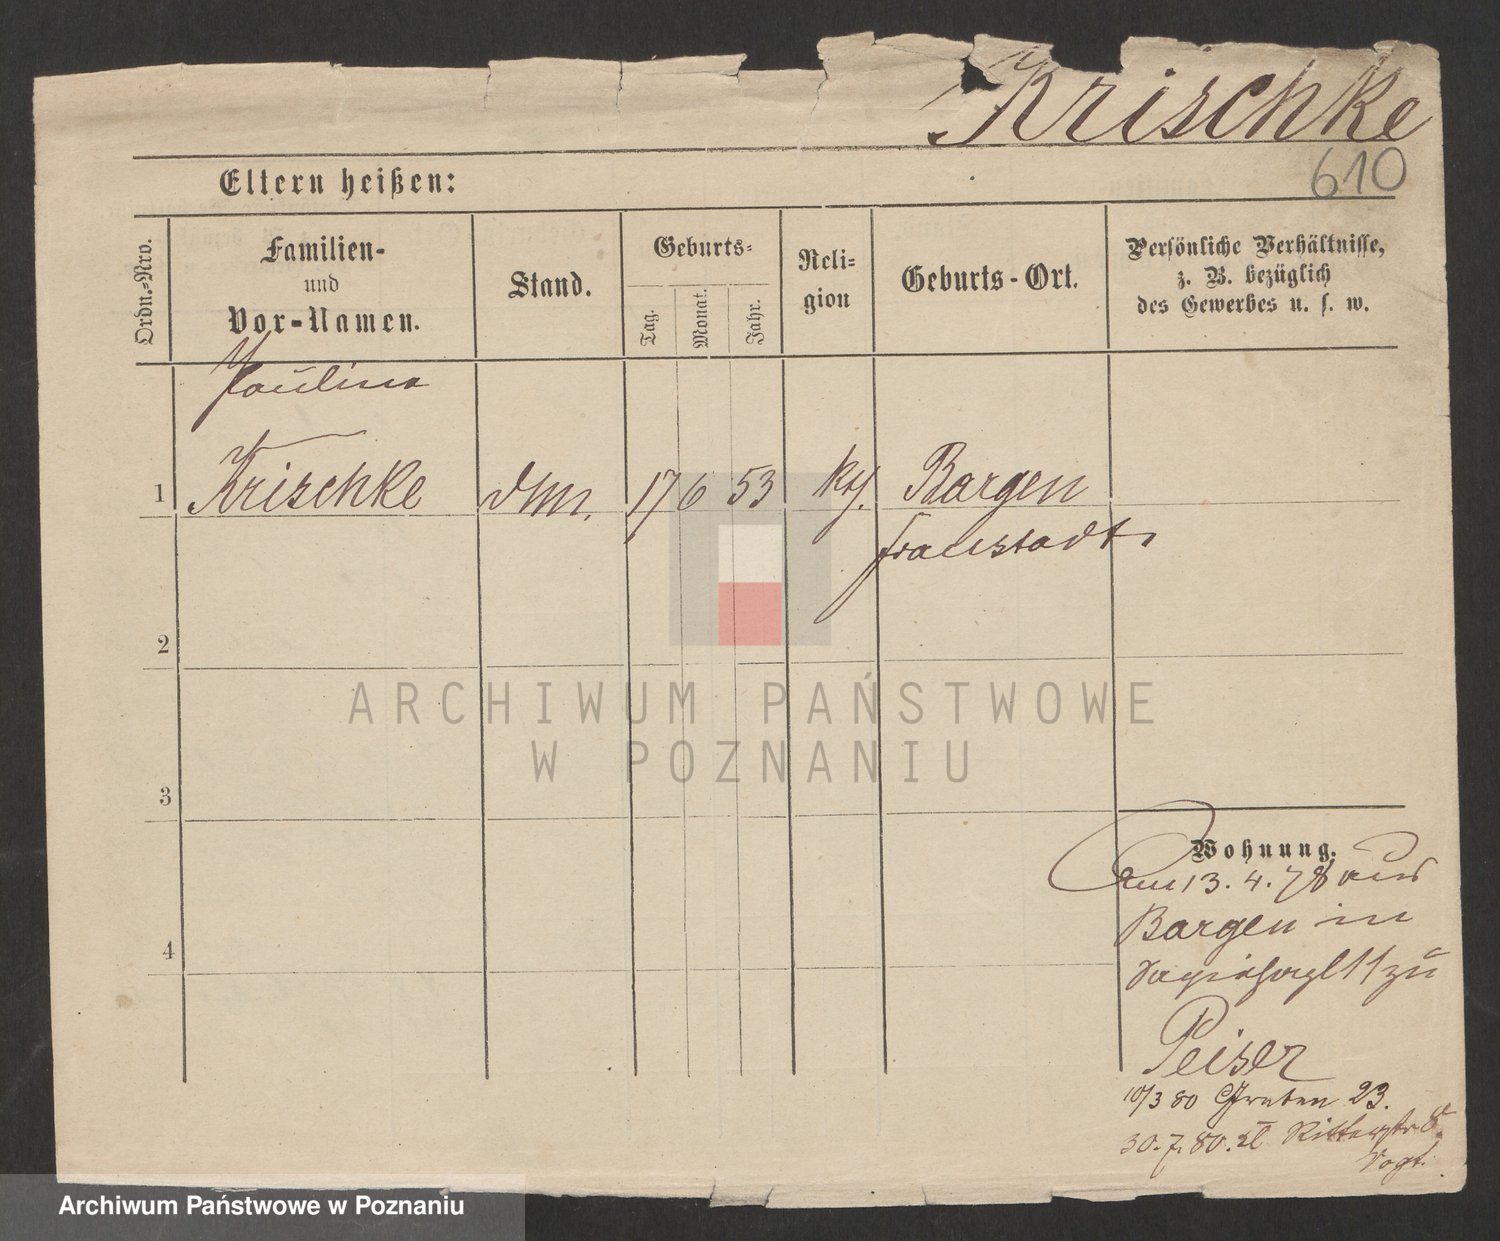 Krischke
610
Eltern heißen:
Ordn.-Nro.
Familien-
und
Vor-Namen.
Stand.
Geburts-
Tag.
Monat.
Jahr.
Reli-
gion
Geburts-Ort.
Persönliche Verhältnisse,
z. B. bezüglich
des Gewerbes u. s. w.
Paulina
1 Krischke 17 6 53 kth. Bargen
Fraustadt
2
3
4
ARCHIWUM PAŃSTWOWE
W POZNANIU
Wohnung.
am 13. 4. 78 aus
Bargen in
11 zu
Peiser
10/3 80 Graben 23.
30. 7. 80. Ritterstr 8.
Vogt.
Archiwum Państwowe w Poznaniu